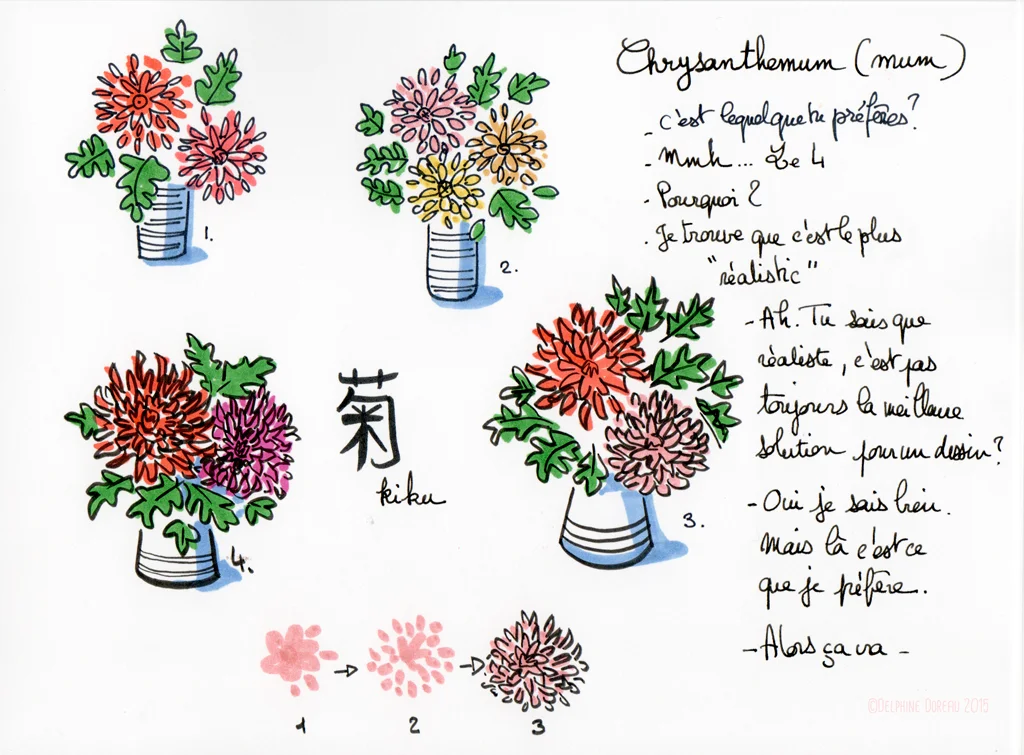 Chrysanthemum (mum)
- c'est lequel que tu préfères?
- Mmh... Le 4
- Pourquoi?
- Je trouve que c'est le plus
"réalistic"
- Ah. Tu sais que
réaliste, c'est pas
toujours la meilleure
solution pour un dessin?
- Oui je sais bien.
Mais là c'est ce
que je préfère.
- Alors ça va -
1.
2.
3.
4.
菊
kiku
1
2
3
©Delphine Doreau 2015